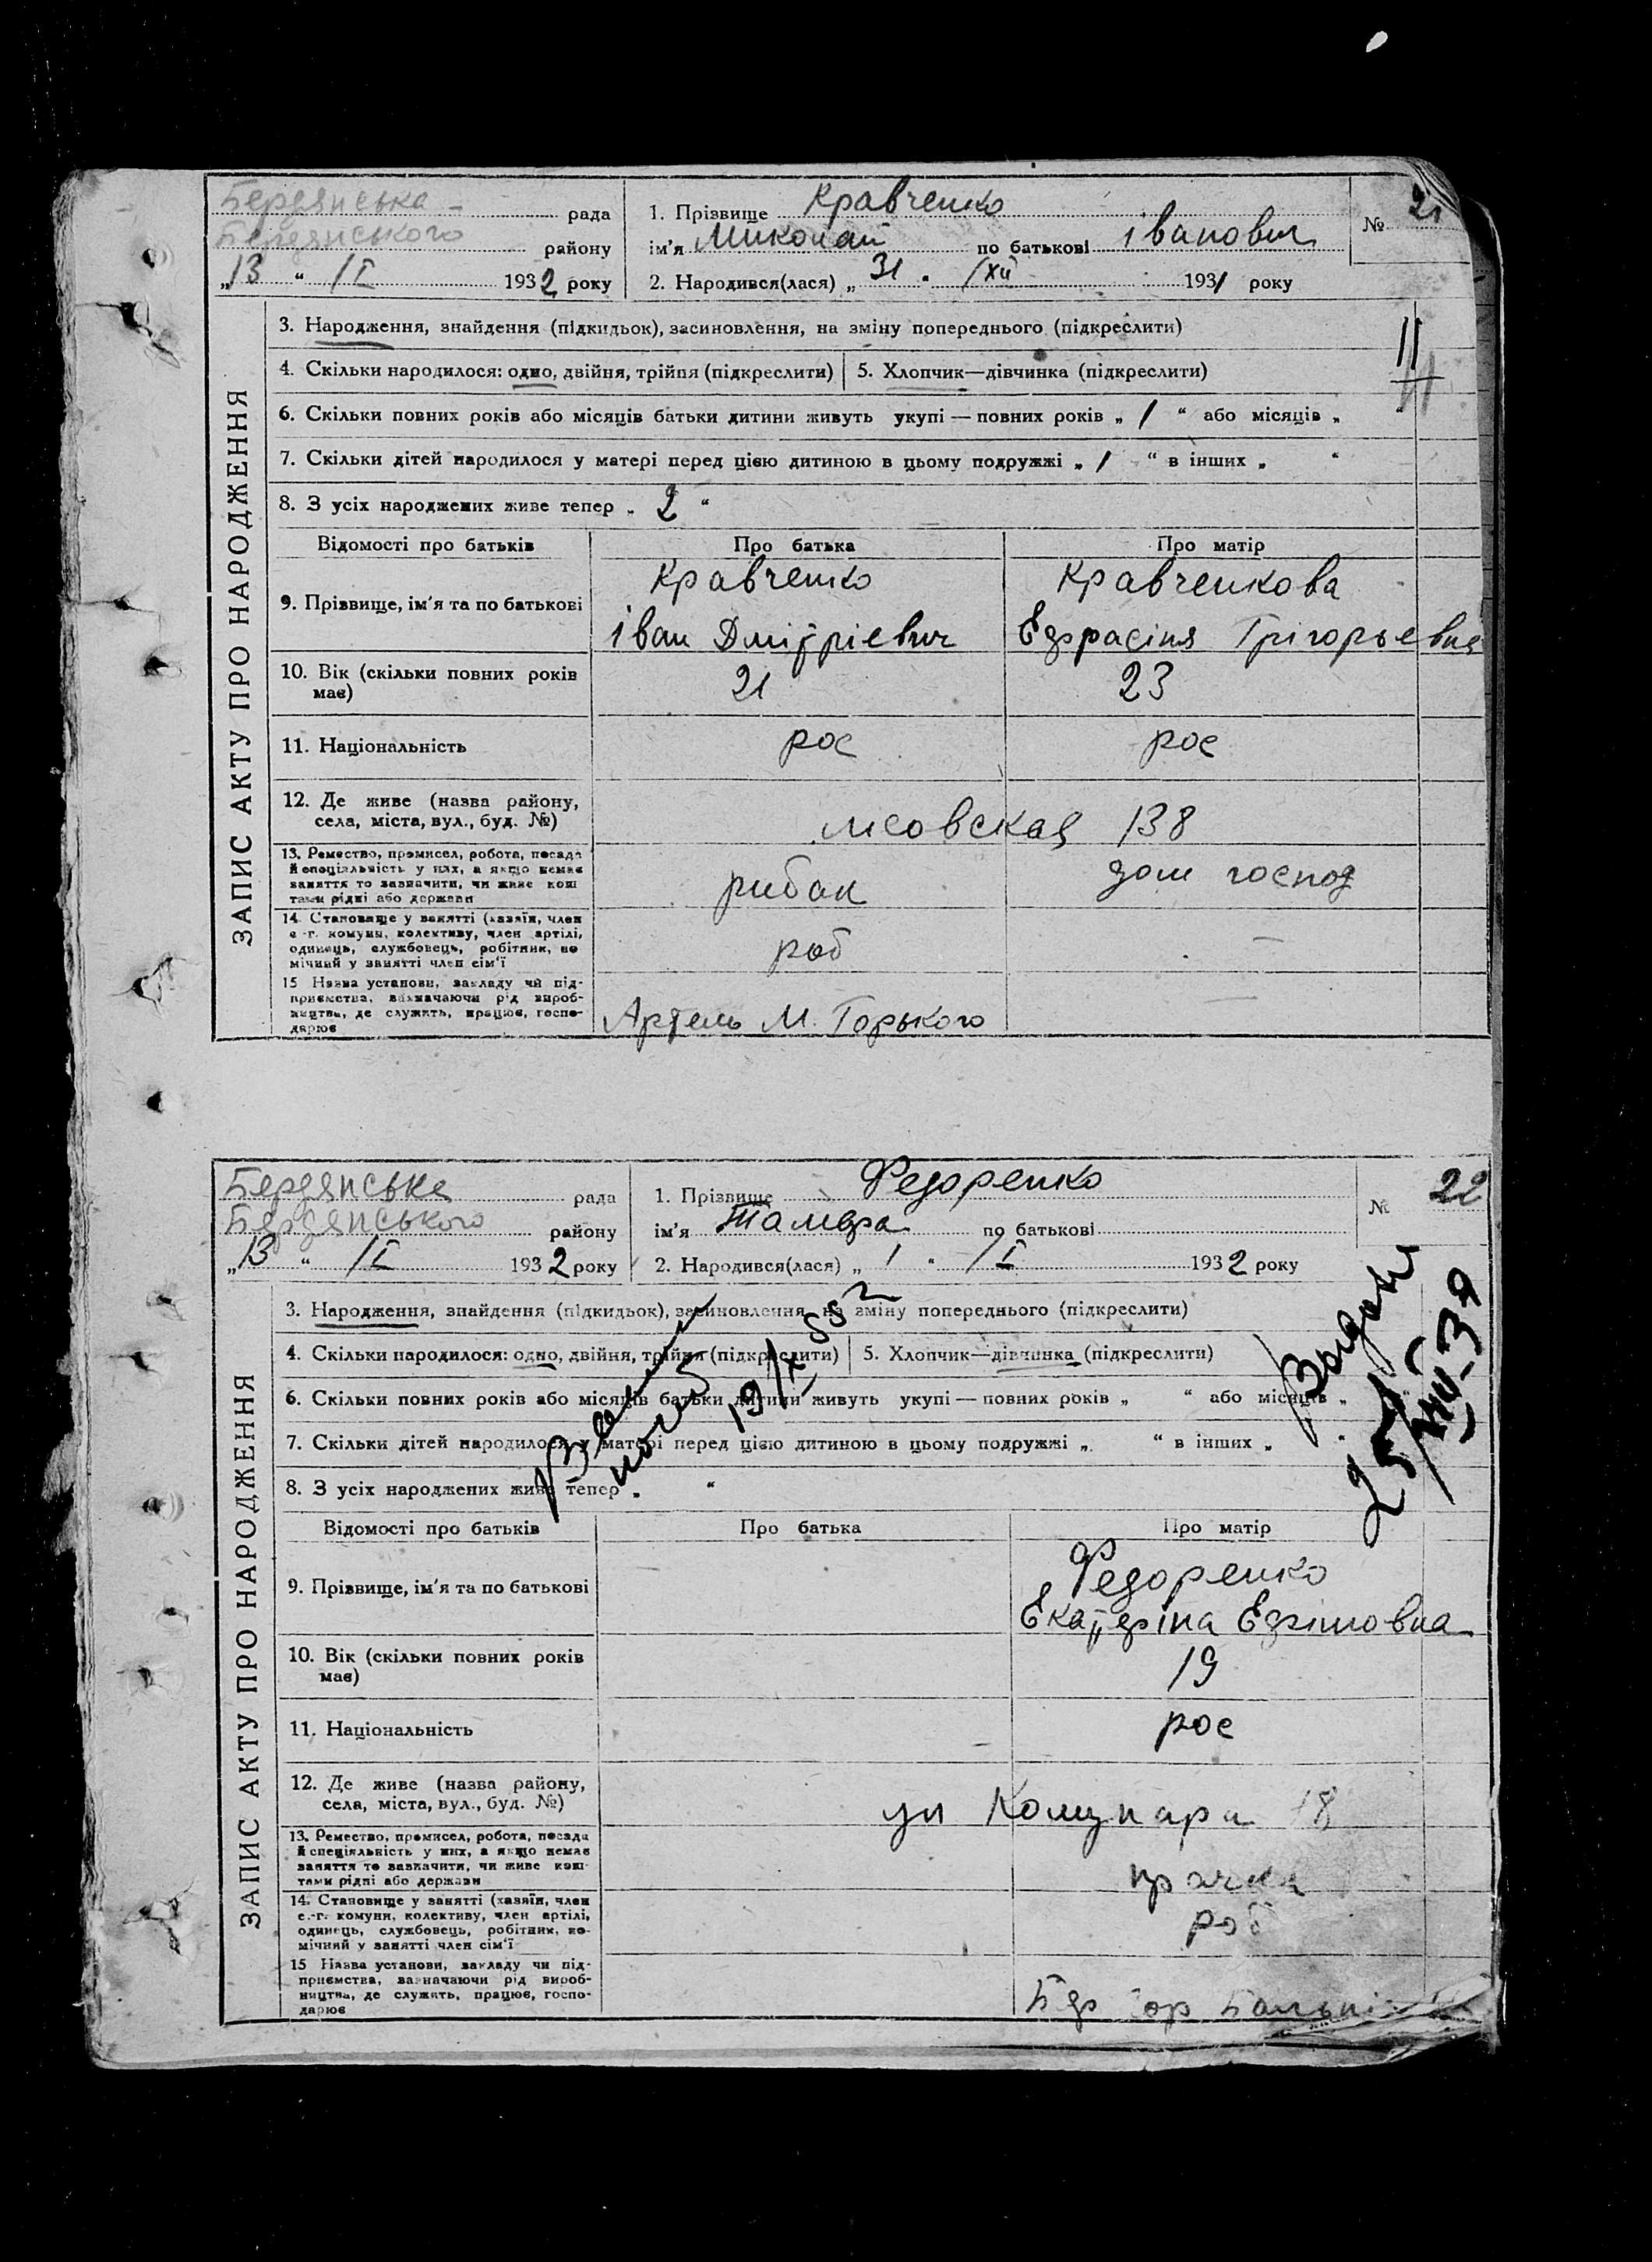 Бердянська рада
Бердянського району
„13“ /I 1932 року
1. Прізвище Кравченко
ім'я Миколай по батькові Іванович
2. Народився(лася) „31“ /XII 1931 року
№ 21
ЗАПИС АКТУ ПРО НАРОДЖЕННЯ
3. Народження, знайдення (підкидьок), засиновлення, на зміну попереднього (підкреслити)
4. Скільки народилося: одно, двійня, трійня (підкреслити) 5. Хлопчик—дівчинка (підкреслити)
11
6. Скільки повних років або місяців батьки дитини живуть укупі — повних років „ 1 “ або місяців „ “
7. Скільки дітей народилося у матері перед цією дитиною в цьому подружжі „ 1 “ в інших „ “
8. З усіх народжених живе тепер „ 2 “
Відомості про батьків Про батька Про матір
9. Прізвище, ім'я та по батькові
Кравченко Кравченкова
Іван Дмітріевич Ефрасіня Грігорьевна
10. Вік (скільки повних років має) 21 23
11. Національність рос рос
12. Де живе (назва району,
села, міста, вул., буд. №)
138
13. Ремество, промисел, робота, посада
й спеціяльність у них, а якщо немає
заняття то зазначити, чи живе кош
тами рідні або держави
рибак дом господ
14. Становище у занятті (хазяїн, член
с.-г. комуни, колективу, член артілі,
одинець, службовець, робітник, по
мічний у занятті член сім'ї
роб —
15 Назва установи, закладу чи під-
приємства, зазначаючи рід вироб-
ництва, де служить, працює, госпо-
дарює
Артель М. Горького —
Бердянська рада
Бердянського району
„13“ /I 1932 року
1. Прізвище Федоренко
ім'я Тамара по батькові
2. Народився(лася) „1“ /I 1932 року
№ 22
ЗАПИС АКТУ ПРО НАРОДЖЕННЯ
3. Народження, знайдення (підкидьок), засиновлення, на зміну попереднього (підкреслити)
4. Скільки народилося: одно, двійня, трійня (підкреслити) 5. Хлопчик—дівчинка (підкреслити)
6. Скільки повних років або місяців батьки дитини живуть укупі — повних років „ “ або місяців „
7. Скільки дітей народилося у матері перед цією дитиною в цьому подружжі „ “ в інших „ “
8. З усіх народжених живе тепер „ “
19/X 55
Відомості про батьків Про батька Про матір
9. Прізвище, ім'я та по батькові
Федоренко
Екатеріна Ефімовна
10. Вік (скільки повних років має) 19
11. Національність рос
12. Де живе (назва району,
села, міста, вул., буд. №)
ул Комунара 18
13. Ремество, промисел, робота, посада
й спеціяльність у них, а якщо немає
заняття то зазначити, чи живе кош-
тами рідні або держави
прачка
14. Становище у занятті (хазяїн, член
с.-г. комуни, колективу, член артілі,
одинець, службовець, робітник, по-
мічний у занятті член сім'ї
роб
15 Назва установи, закладу чи під-
приємства, зазначаючи рід вироб-
ництва, де служить, працює, госпо-
дарює
Бер гор